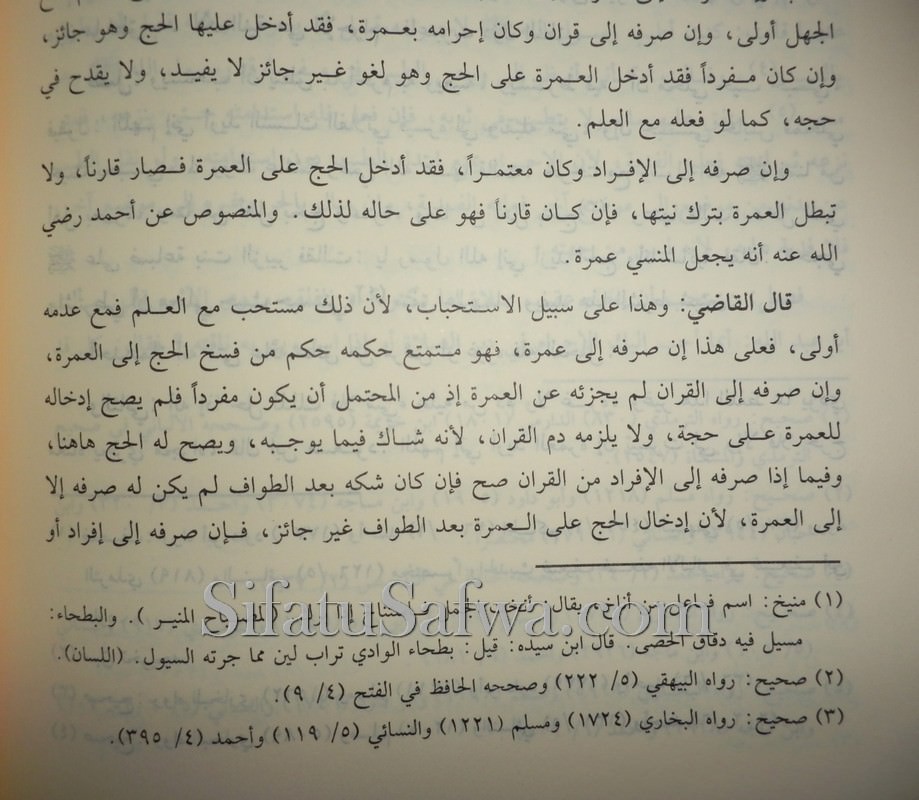 الجهل أولى، وإن صرفه إلى قران وكان إحرامه بعمرة، فقد أدخل عليها الحج وهو جائز،
وإن كان مفرداً فقد أدخل العمرة على الحج وهو لغو غير جائز لا يفيد، ولا يقدح في
حجه، كما لو فعله مع العلم.
وإن صرفه إلى الإفراد وكان معتمراً، فقد أدخل الحج على العمرة فصار قارناً، ولا
تبطل العمرة بترك نيتها، فإن كان قارناً فهو على حاله لذلك. والمنصوص عن أحمد رضي
الله عنه أنه يجعل المنسي عمرة.
قال القاضي: وهذا على سبيل الاستحباب، لأن ذلك مستحب مع العلم فمع عدمه
أولى، فعلى هذا إن صرفه إلى عمرة، فهو متمتع حكمه حكم من فسخ الحج إلى العمرة،
وإن صرفه إلى القران لم يجزئه عن العمرة إذ من المحتمل أن يكون مفرداً فلم يصح إدخاله
للعمرة على حجة، ولا يلزمه دم القران، لأنه شاك فيما يوجبه، ويصح له الحج هاهنا،
وفيما إذا صرفه إلى الإفراد من القران صح فإن كان شكه بعد الطواف لم يكن له صرفه إلا
إلى العمرة، لأن إدخال الحج على العمرة بعد الطواف غير جائز، فإن صرفه إلى إفراد أو
(١) منيخ: اسم فاعل من أناخ، يقال: أنخت الجمل فاستناخ إذا برك. (المصباح المنير). والبطحاء:
SifatuSafwa.com
مسيل فيه دقاق الحصى. قال ابن سيده: قيل: بطحاء الوادي تراب لين مما جرته السيول. (اللسان).
(٢) صحيح: رواه البيهقي (٥/ ٢٢٢) وصححه الحافظ في الفتح (٤/ ٩).
(٣) صحيح: رواه البخاري (١٧٢٤) ومسلم (١٢٢١) والنسائي (٥/ ١١٩) وأحمد (٤/ ٣٩٥).